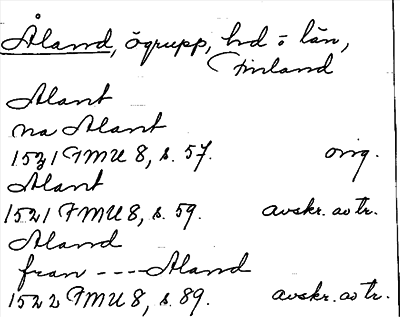 Åland, ögrupp, hd o län,
Finland
Alant
na Alant
1521 FMU 8, s. 57. orig.
Alant
1521 FMU 8, s. 59. avskr. av tr.
Aland
fran ---- Aland
1522 FMU 8, s. 89. avskr. av tr.